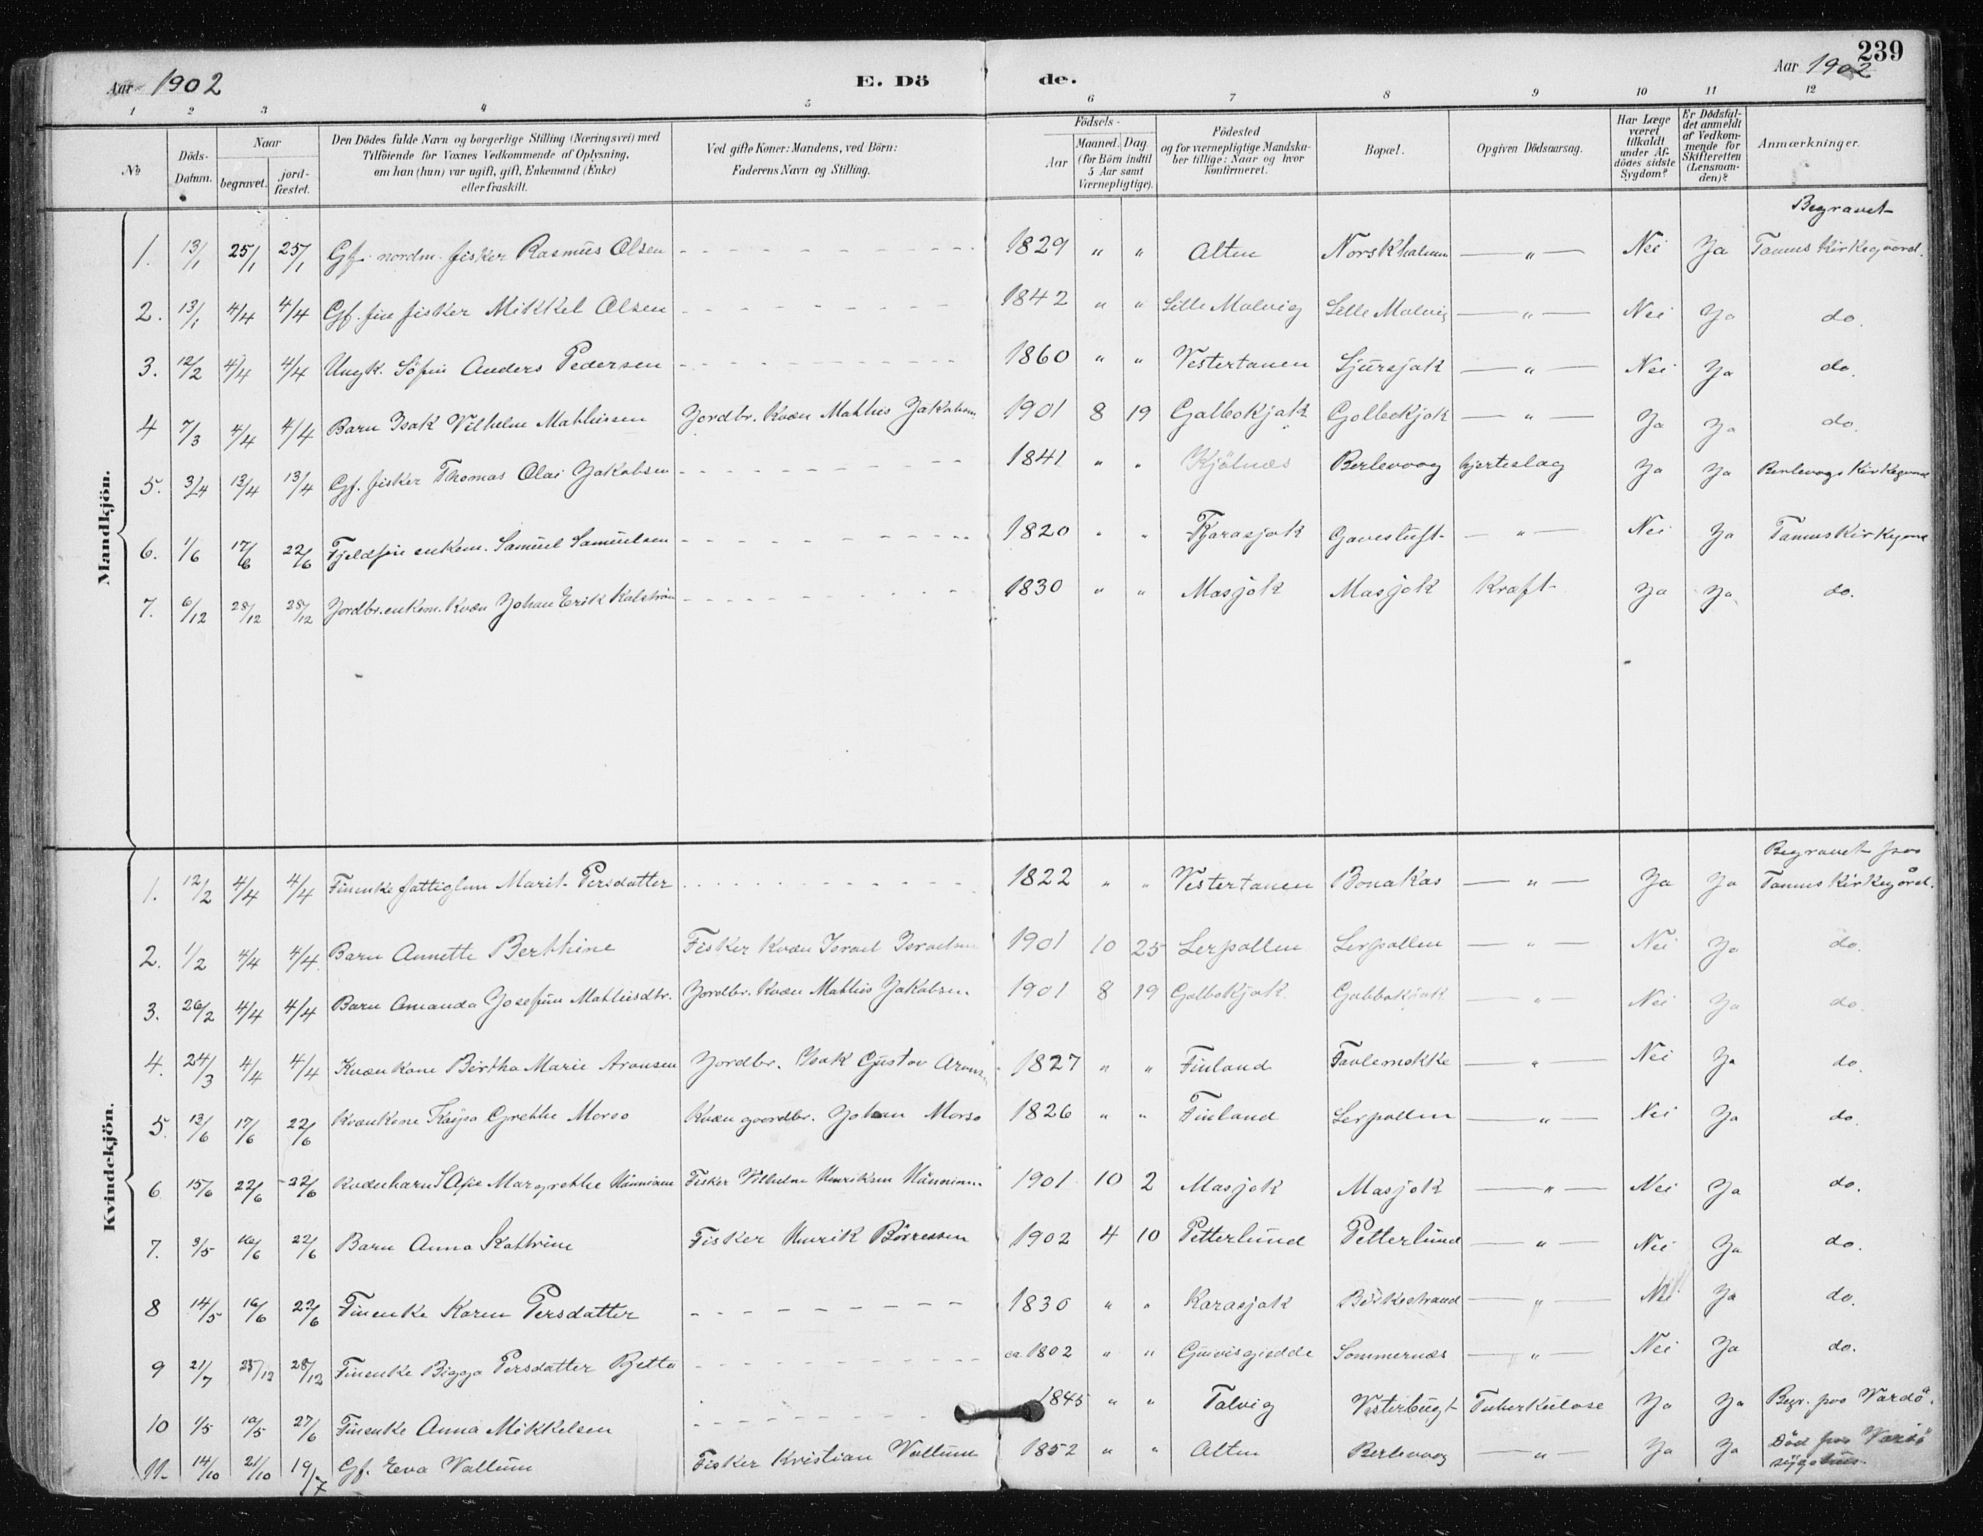 Aar 1902
E. Döde.
239
Aar 1902
1 2 3 4 5 6 7 8 9 10 11 12
No
Döds-Datum.
Naar
begravet.
jord-fæstet.
Den Dödes fulde Navn og borgerlige Stilling (Næringsvei) med
Tilföiende for Voxnes Vedkommende af Oplysning,
om han (hun) var ugift, gift, Enkemand (Enke)
eller fraskilt.
Ved gifte Koner: Mandens, ved Börn:
Faderens Navn og Stilling.
Födsels-
Aar
Maaned. Dag.
(for Börn indtil
5 Aar samt
Værnepligtige).
Födested
og for værnepligtige Mandska-
ber tillige: Naar og hvor
konfirmeret.
Bopæl.
Opgiven Dödsaarsag.
Har Læge
været
tilkaldt
under Af-
dödes sidste
Sygdom?
Er Dödsfal-
det anmeldt
af Vedkom-
mende for
Skifteretten
(Lensman-
den)?
Anmærkninger.
Mandkjön.
Begravet
1. 13/1 25/1 25/1 Gf. nordm. fisker Rasmus Olsen - - - 1829 " " Alten Norskholmen — " — Nei Ja Tanus Kirkegaard.
2. 13/1 4/4 4/4 Gf. fin fisker Mikkel Olsen - - - 1842 " " Lille Molvig Lille Molvig — " — Nei Ja do.
3. 12/2 4/4 4/4 Ungk. Söfin Anders Pedersen - - - 1860 " " Vestertanen — " — Nei Ja do.
4 7/3 4/4 4/4 Barn Isak Vilhelm Mathissen Jordbr. Kvæn Mathis Jakobsen 1901 8 19 Galbokjok Golbokjok — " — Ja Ja do.
5. 3/4 13/4 13/4 Gf. fisker Thomas Olai Jakobsen - - - 1841 " " Kjölnæs Berlevaag hjerteslag Ja Ja Berlevogs Kirkegaard
6. 1/6 17/6 22/6 Fjeldfin enkem. Samuel Samuelsen - - - 1820 " " Karasjok — " — Nei Ja Tanus Kirkegaard
7. 6/12 28/12 28/12 Jordbr. enkem. Kvæn Johan Erik Kalström - - - 1830 " " Masjok Masjok Kræft Ja Ja do.
Kvindekjön.
Begravet paa
1. 12/2 4/4 4/4 Finenke fattiglem Marit Persdatter - - - 1822 " " Vestertanen Bonakas — " — Ja Ja Tanus Kirkegård.
2. 1/2 4/4 4/4 Barn Annette Berthine Fisker Kvæn Israel Israelsen 1901 10 25 Lerpollen Lerpollen — " — Nei Ja do.
3. 26/2 4/4 4/4 Barn Amanda Josefine Mathisdtr. Jordbr. Kvæn Mathis Jakobsen 1901 8 19 Golbokjok Golbbokjok — " — Nei Ja do.
4. 24/3 4/4 4/4 Kvæn Kone Birtha Marie Aronsen Jordbr. Isak Gustav Aronsen 1827 " " Finland — " — Nei Ja do.
5. 13/6 17/6 22/6 Kvænkone Kaysa Grethe Morso Kvæn goordbr. Johan Morso 1826 " " Finland Lerpollen — " — Nei Ja do.
6 15/6 22/6 22/6 Kvænbarn Sofie Margrethe Hänninen Fisker Vilhelm Henriksen Hänninen 1901 10 2 Masjok Masjok — " — Nei Ja do.
7. 3/5 16/6 22/6 Barn Anna Kathrine Fisker Henrik Börresen 1902 4 10 Petterlund Petterlund — " — Nei Ja do.
8 14/5 16/6 22/6 Finenke Karen Persdatter - - - 1830 " " Karasjok Birkestrand — " — Nei Ja do.
9 21/7 28/12 28/12 Finenke Bigga Persdatter Bjetta - - - ca 1802 " " Sommernæs — " — Nei Ja do.
10 1/5 10/5 27/6 Finenke Anna Mikkelsen - - - 1845 " " Talvig Vesterbugt Tuberkulose Ja Ja Begr. paa Vardö.
11. 14/10 21/10 19/7 Gf. Eva Vallum Fisker Kristian Vallum 1852 " " Alten Berlevaag " Ja Ja Död paa Vardö
sygehus.